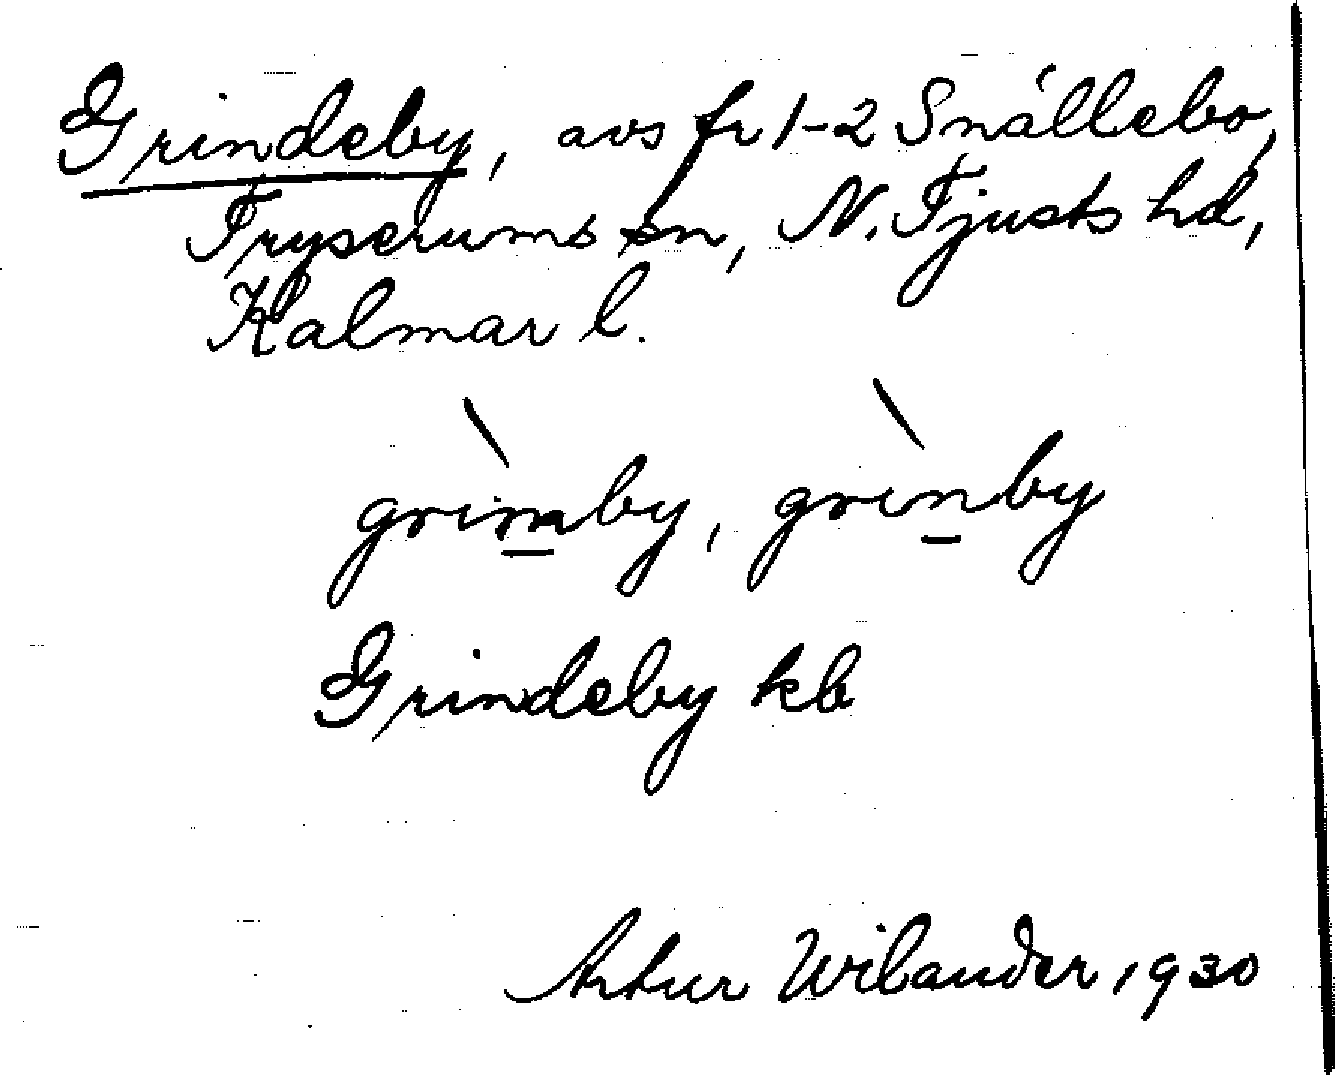 Grindeby, avs fr 1-2 Snällebo,
Tryserums sn, N. Tjusts hd,
Kalmar l.
grinnby, grinby
Grindeby kb
Artur Wilander 1930